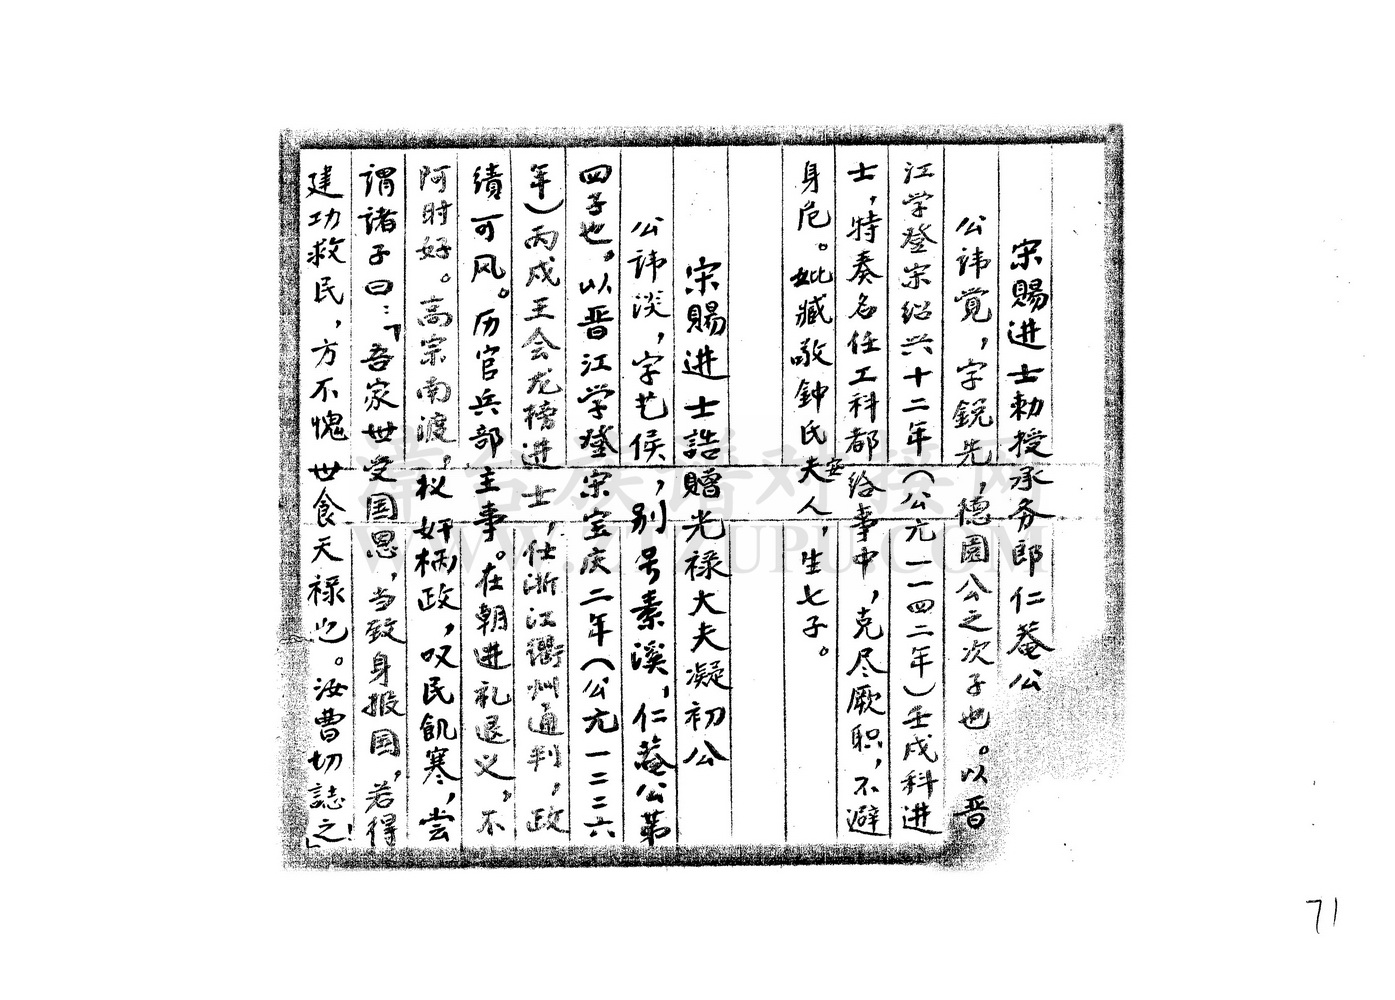 宋赐进士勅授承务郎仁菴公
公讳觉，字锐先，德园公之次子也。以晋
江学登宋绍兴十二年（公元一一四二年）壬戌科进
士，特奏名任工科都给事中，克尽厥职，不避
身危。妣臧敬钟氏安夫人，生七子。
宋赐进士诰赠光禄大夫凝初公
公讳淡，字艺侯，别号素溪，仁菴公第
四子也。以晋江学登宋宝庆二年（公元一二二六
年）丙戌王会龙榜进士，仕浙江衢州通判，政
绩可风。历官兵部主事。在朝进礼退义，不
阿时好。高宗南渡，权奸柄政，叹民飢寒，尝
谓诸子曰：「吾家世受国恩，当致身报国，若得
建功救民，方不愧世食天禄也。汝曹切誌之！」
71
常台族谱对接网
WWW.ZTZUPU.COM